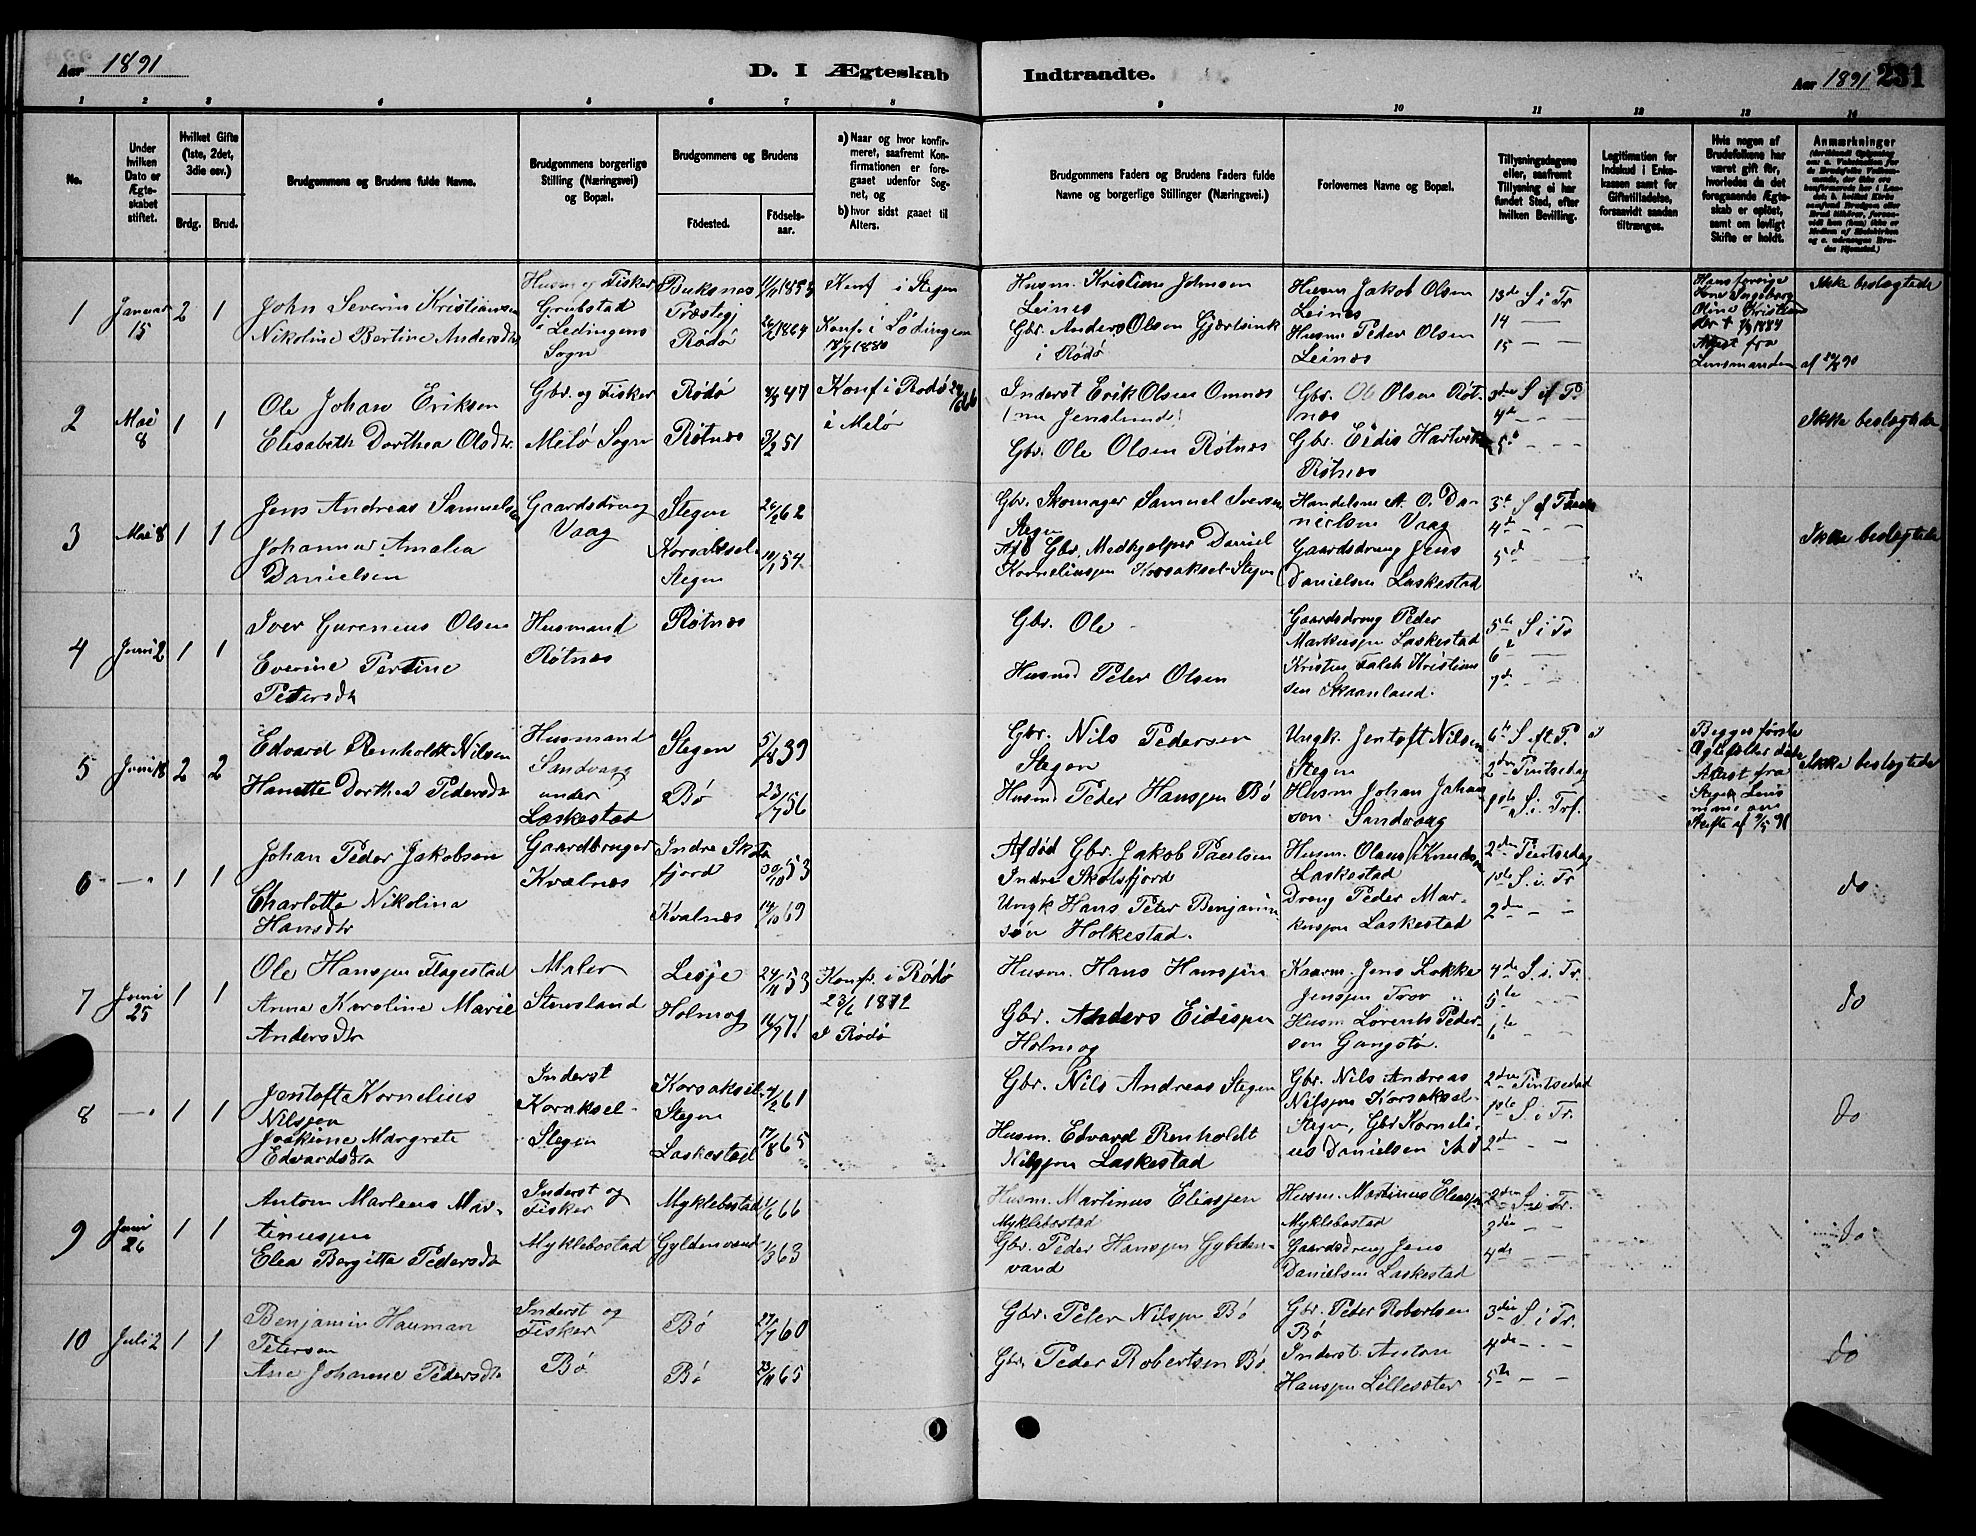 Aar 1891
D. I Ægteskab Indtraadte.
Aar 1891 231
1 2 3 4 5 6 7 8 9 10 11 12 13 14
No.
Under hvilken Dato er Ægteskabet stiftet.
Hvilket Gifte (1ste, 2det, 3die osv.)
Brdg. Brud.
Brudgommens og Brudens fulde Navne.
Brudgommens borgerlige Stilling (Næringsvei) og Bopæl.
Brudgommens og Brudens
Fødested. Fødselsaar.
a) Naar og hvor konfirmeret, saafremt Konfirmationen er foregaaet udenfor Sognet, og
b) hvor sidst gaaet til Alters.
Brudgommens Faders og Brudens Faders fulde Navne og borgerlige Stillinger (Næringsvei.)
Forlovernes Navne og Bopæl.
Tillysningsdagene eller, saafremt Tillysning ei har fundet Sted, efter hvilken Bevilling.
Legitimation for Indskud i Enkekassen samt for Giftetilladelse, forsaavidt saadan tiltrænges.
Hvis nogen af Brudefolkene har været gift før, hvorledes da det foregaaende Ægteskab er opløst, samt om lovligt Skifte er holdt.
Anmærkninger
1 Januar 15 2 1
John Severin Kristiansen
Nikoline Bertine Andersdtr
Husm. og Fisker
Grubstad
Ledingens
Sogn
Buksnes
Præstegj
Rødø
1853
1864
Konf i Stegen
Konf. i Lødingen
1880
Husm. Kristian Johnsen
Leines
Gbr. Anders Olsen Gjærtsink
i Rødø
Husm Jakob Olsen
Leines
Husm. Peder Olsen
Leines
13de S i Tr
14 — —
15 — —
Hans forrige
Kone Ingeborg
Oline Kristians
dtr + 1884
Attest fra
Lensmanden af 90
Ikke beslægtede
2 Mai 8 1 1
Ole Johan Eriksen
Elisabeth Dorthea Olsdtr.
Gbr. og Fisker
Melø Sogn
Rødø
Røtnes
47
3/2 51
Konf. i Rødø
i Melø
Inderst Erik Olsen Omnes
Gbr. Ole Olsen Røtnes
Gbr. Ole Olsen Røtnes
Gbr. Eidis Hartvik
Røtnes
3die S ef P
4de
5te
Ikke beslægtede
3 Mai 8 1 1
Jens Andreas Samuelsen
Johanna Amalia
Danielsen
Gaardsdreng
Vaag
Stegen
Korsaksel
Stegen
62
54
Gbr. Skomager Samuel Iversen
Stegen
Afd Gbr. Medhjelper Daniel
Korneliusen Korsaksel-Stegen
Handelsm A. O. Danielsen Vaag
Gaardsdreng Jens
Danielsen Laskestad
3de S ef Paaske
4de — —
5te — —
Ikke beslægtede
4 Juni 2 1 1
Iver Gurenius Olsen
Everine Pertine
Petersdtr
Husmand
Røtnes
Røtnes
Gbr. Ole —
Husmd Peter Olsen
Gaardsdreng Peder
Markussen Laskestad
Kristen Falch Kristiansen Skaanland.
5te S i Tr
6te — —
7de — —
5 Juni 18 2 2
Edvard Renholdt Nilsen
Hanette Dorthea Pedersdtr
Husmand
Sandvaag
under
Laskestad
Stegen
Bø
5/8 39
23/7 56
Gbr. Nils Pedersen
Stegen
Husmd Peder Hansen Bø
Ungk. Jentoft Nilsen
Stegen
Husm Johan Johansen Sandvaag
6te S eft. P.
2den Pintsedag
1ste S. i. Trf.
Begges første
Ægtefæller døde
Attest fra
Stegen Lensmand om
Skifte af 9/5 91
Ikke beslægtede
6 —"— 1 1
Johan Peder Jakobsen
Charlotte Nikolina
Hansdtr
Gaardbruger
Kvalnes
Indre Skotsfjord
Kvalnes
30/10 53
14/10 69
Afdød Gbr. Jakob Paulsen
Indre Skotsfjord
Ungk Hans Peter Benjaminsøn Holkestad.
Husm. Olaus Knudsen
Laskestad
Dreng Peder Markussen Laskestad
2den Pintsedag
1ste S. i. Tr
2den — —
do
7 Juni 25 1 1
Ole Hansen Flagestad
Anna Karoline Marie
Andersdtr
Maler
Stensland
Lesje
Holmog
24/11 53
16/9 71
Konf. i Rødø
23/6 1872
I Rødø
Husm. Hans Hansen
Gbr. Anders Eidissen
Holmog
Kaarm. Jens Løkke
Jensen Trov
Husm Lorents Pedersen Gangstø.
4de S. i. Tr.
5te — —
6te — —
do
8 —"— 1 1
Jentoft Kornelius
Nilssen
Joakime Margrete
Edvardsdtr
Inderst
Koraksel-
Stegen
Korsaksel-
Stegen
Laskestad
4/2 61
17/8 65
Gbr. Nils Andreas Stegen
Husm. Edvard Renholdt
Nilssen Laskestad
Gbr. Nils Andreas
Nilssen Korsaksel-
Stegen, Gbr Kornelius Danielsen
2den Pintsedag
1ste S i Tr.
2den — —
do
9 Juni 26 1 1
Anton Marleus Martinussen
Elea Bergitta Pedersdtr
Inderst og
Fisker
Myklebostad
Myklebostad
Gyldenvand
1/6 66
1/3 63
Husm. Martinus Eliassen
Myklebostad
Gbr. Peder Hansen Gyldenvand
Husm. Martinus Eliassen
Myklebostad
Gaardsdreng Jens
Danielsen Laskestad
2den S i Tr.
3die — —
4de — —
do
10 Juli 2 1 1
Benjamin Hauman
Petersen
Ane Johanne Pedersdtr
Inderst og
Fisker
Bø
Bø
Bø
27/7 60
23/11 65
Gbr. Peter Nilssen Bø
Gbr. Peder Robertsen Bø
Gbr. Peder Robertsen
Bø
Inderst. Anton
Hansen Lillesæter
3die S i Tr.
4de — —
5te — —
do